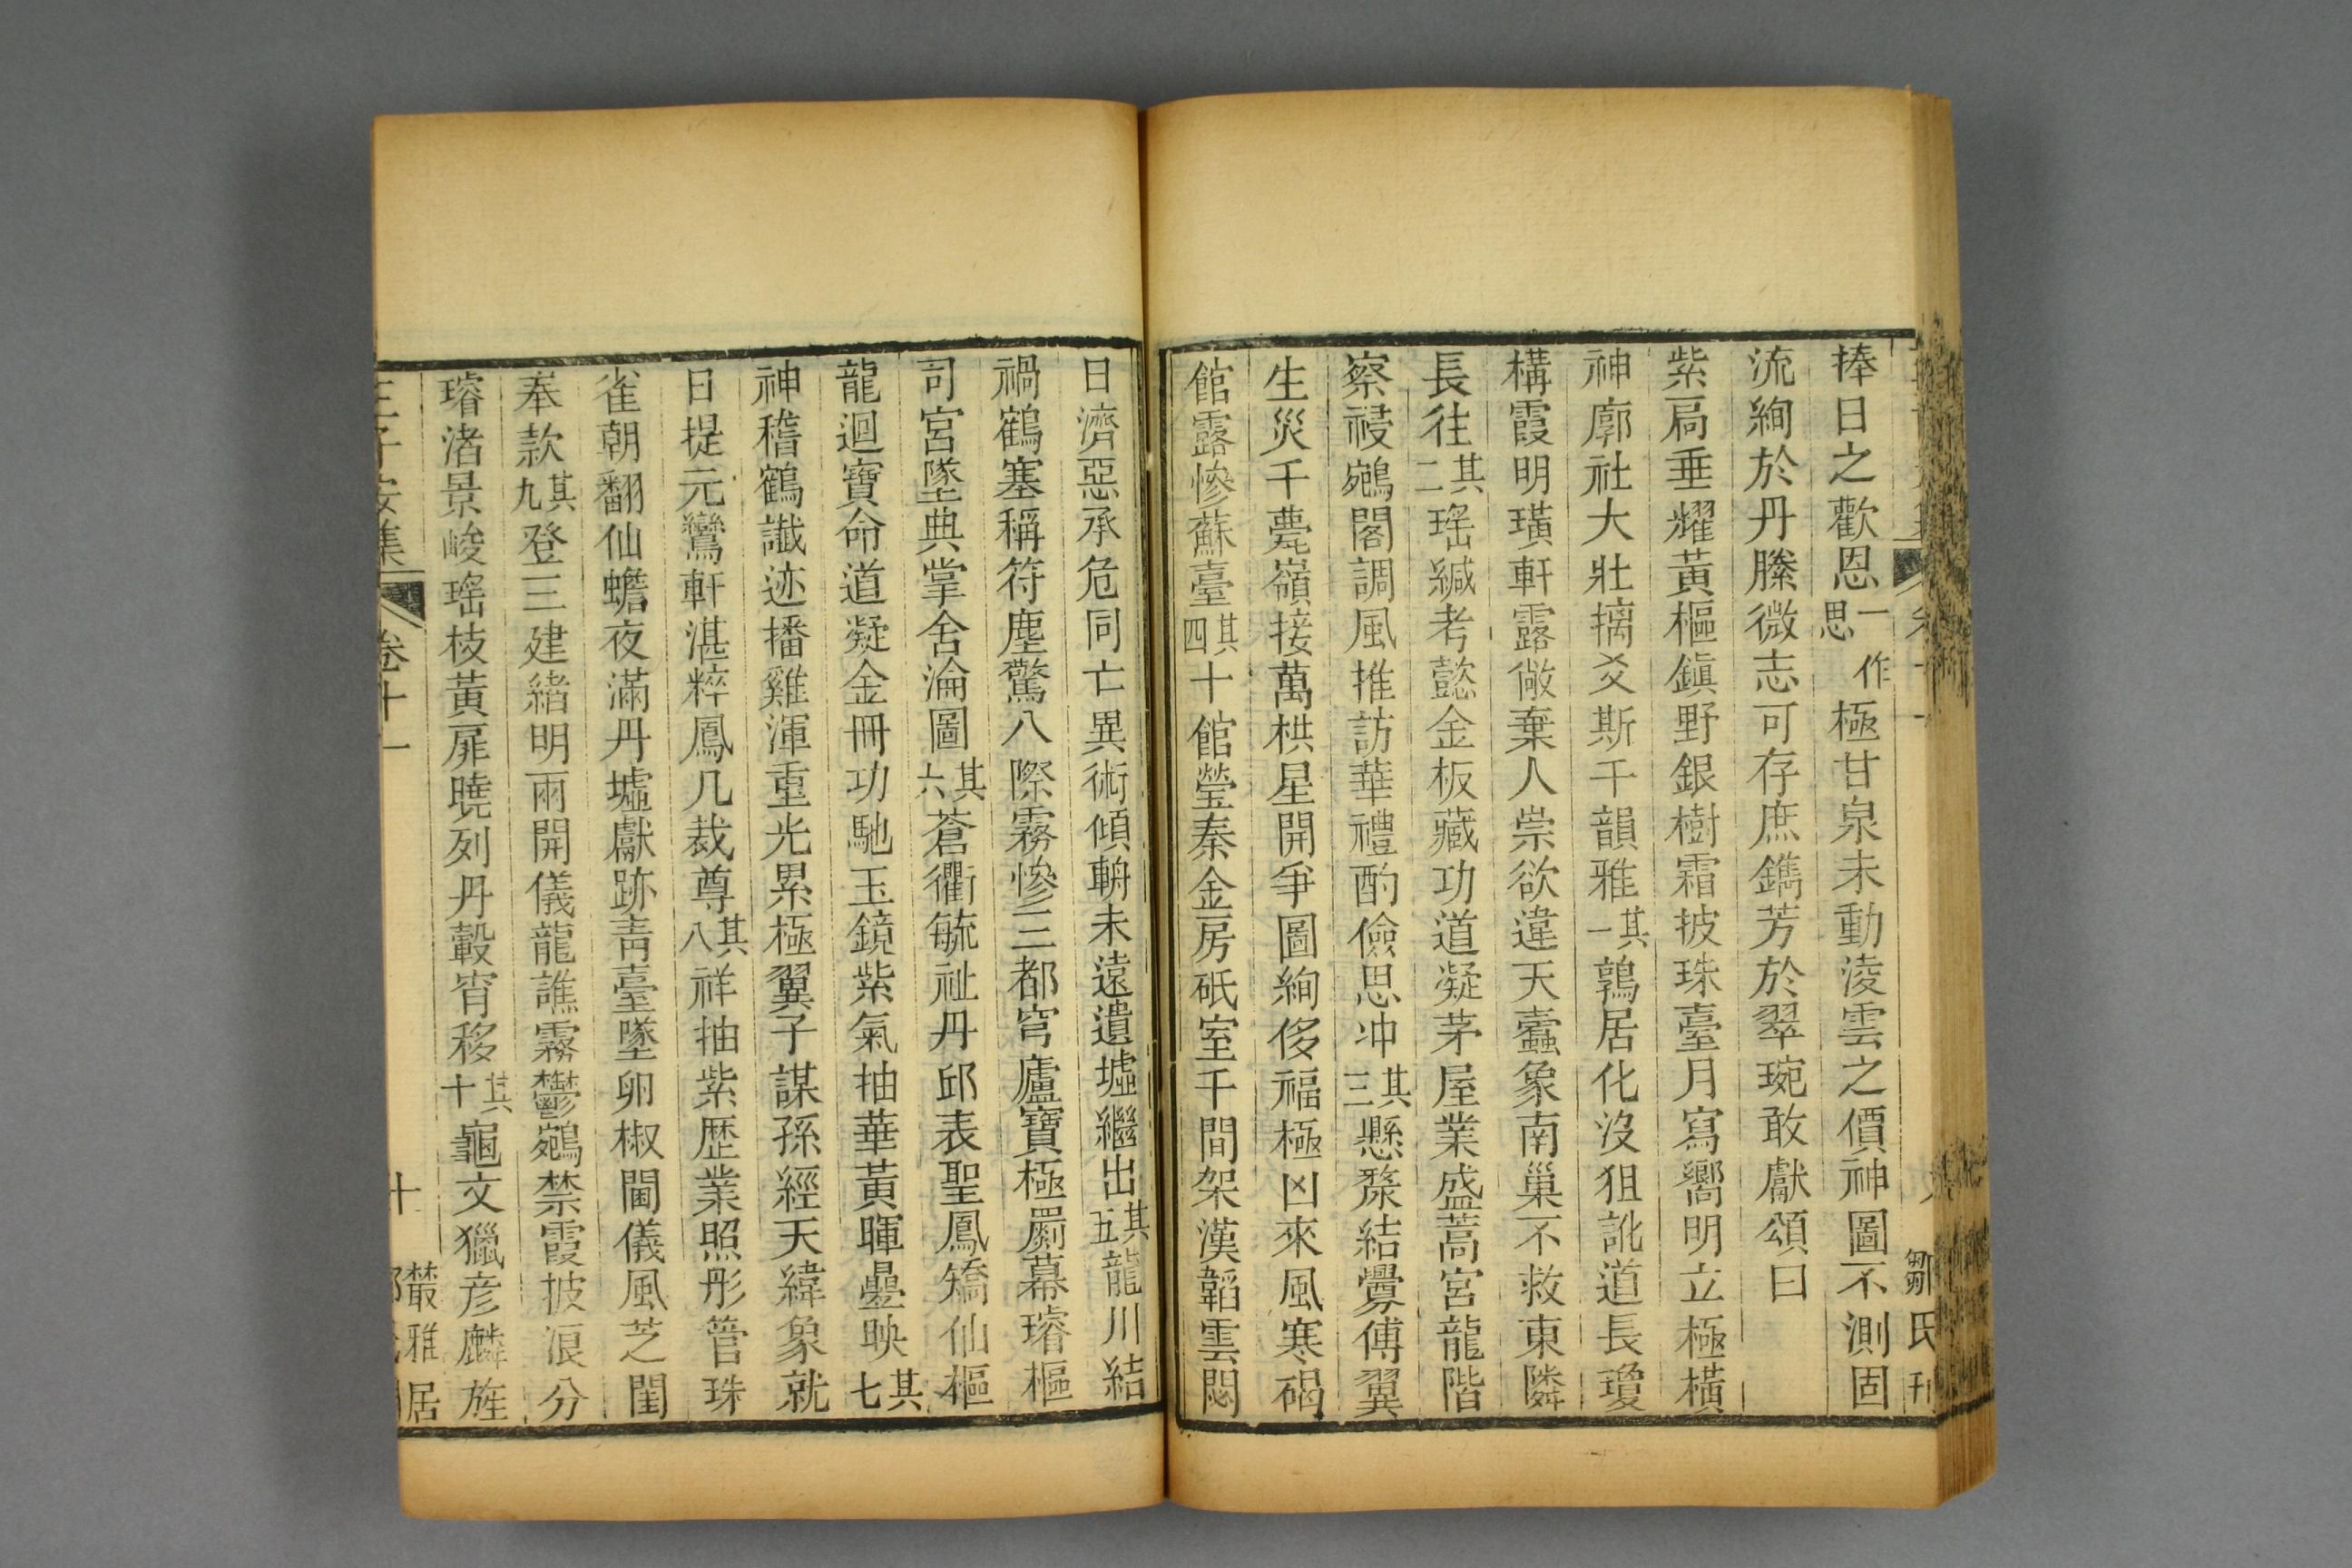 鄒氏刊
捧日之歡恩一作思極甘泉未動淩雲之價神圖不測固
流絢於丹縢微志可存庶鐫芳於翠琬敢獻頌曰
紫扃垂耀黃樞鎭野銀樹霜披珠臺月寫嚮明立極橫
神廓社大壯摛爻斯干韻雅其一鶉居化沒狙訛道長瓊
構霞明璜軒露敞棄人崇欲違天蠹象南巢不救東隣
長往其二瑤緘考懿金板藏功道凝茅屋業盛蒿宮龍階
察祲鵷閣調風推訪華禮酌儉思冲其三懸漦結釁傅翼
生災千甍嶺接萬栱星開爭圖絢侈福極凶來風寒碣
館露慘蘇臺其四十館瑩秦金房砥室千間架漢韜雲閟
日濟惡承危同亡異術傾輈未遠遺墟繼出其五龍川結
禍鶴塞稱符塵驚八際霧慘三都穹廬寶極罽幕璿樞
司宮墜典掌舍淪圖其六蒼衢毓祉丹邱表聖鳳矯仙樞
龍迴寶命道凝金冊功馳玉鏡紫氣抽華黃暉曡映其七
神稽鶴讖迹播雞渾重光累極翼子謀孫經天緯象就
日提元鸞軒湛粹鳳几裁尊其八祥抽紫歴業照彤管珠
雀朝翻仙蟾夜滿丹墟獻跡靑臺墜卵椒閫儀風芝閨
奉款其九登三建緒明兩開儀龍譙霧鬱鵷禁霞披浪分
璿渚景峻瑤枝黃扉曉列丹轂宵移其十龜文獵彦麟旌
王子安集 卷十一 十 藂雅居